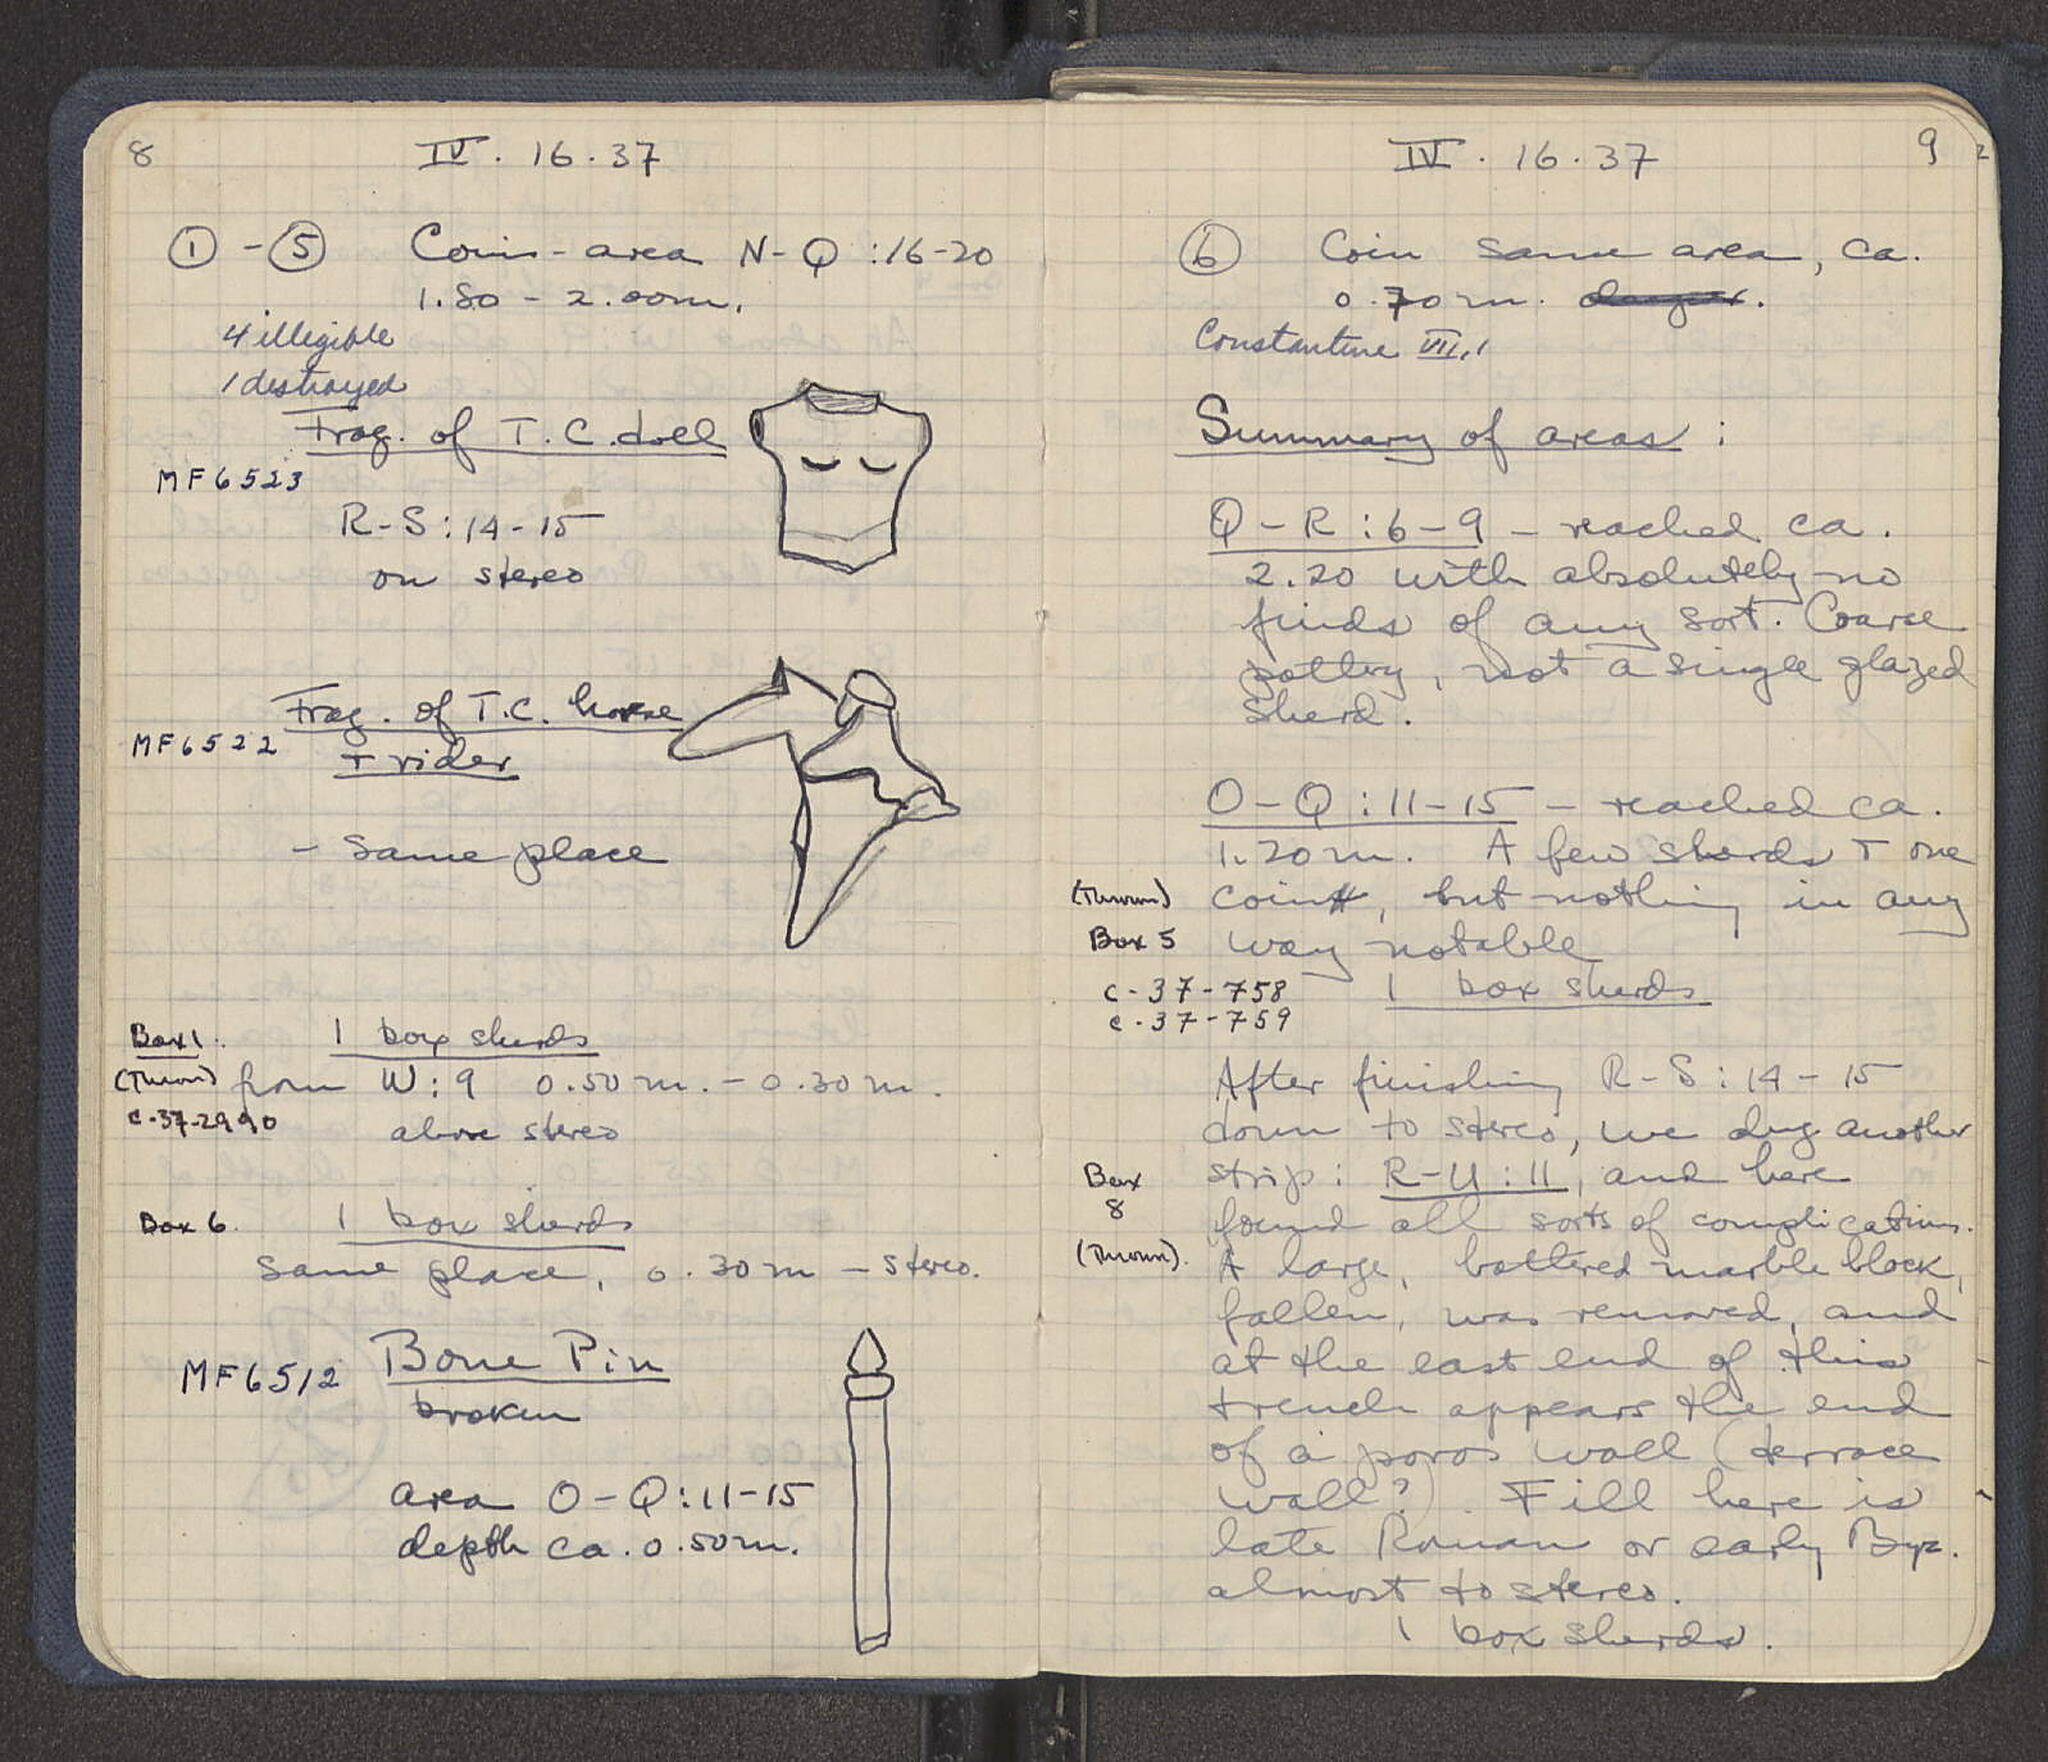 8
IV. 16. 37
① - ⑤ Coins - area N-Q :16-20
1.80 - 2.00m.
4 illegible
1 destroyed
Frag. of T.C. doll
MF6523
R-S:14-15
on stereo
Frag. of T.C. horse
MF6522
+ rider
- same place
Box 1. 1 box sherds
(Thrown) from W:9 0.50m. - 0.30m.
C-37-2990
above stereo
Box 6. 1 box sherds
same place, 0.30m - stereo.
MF6512 Bone Pin
broken
area O-Q:11-15
depth ca. 0.50m.
9
IV. 16. 37
⑥ Coin same area, ca.
0.70m. deeper.
Constantine VII,1
Summary of areas:
Q-R:6-9 - reached ca.
2.20 with absolutely no
finds of any sort. Coarse
pottery, not a single glazed
sherd.
O-Q:11-15 - reached ca.
1.20m. A few sherds + one
(Thrown) coin, but nothing in any
Box 5 way notable
C-37-758 1 box sherds
C-37-759
After finishing R-S:14-15
down to stereo, we dug another
Box strip: R-U:11, and here
8 found all sorts of complications.
(Thrown). A large, battered marble block,
fallen, was removed, and
at the east end of this
trench appears the end
of a poros wall (terrace
wall?). Fill here is
late Roman or early Byz.
almost to stereo.
1 box sherds.